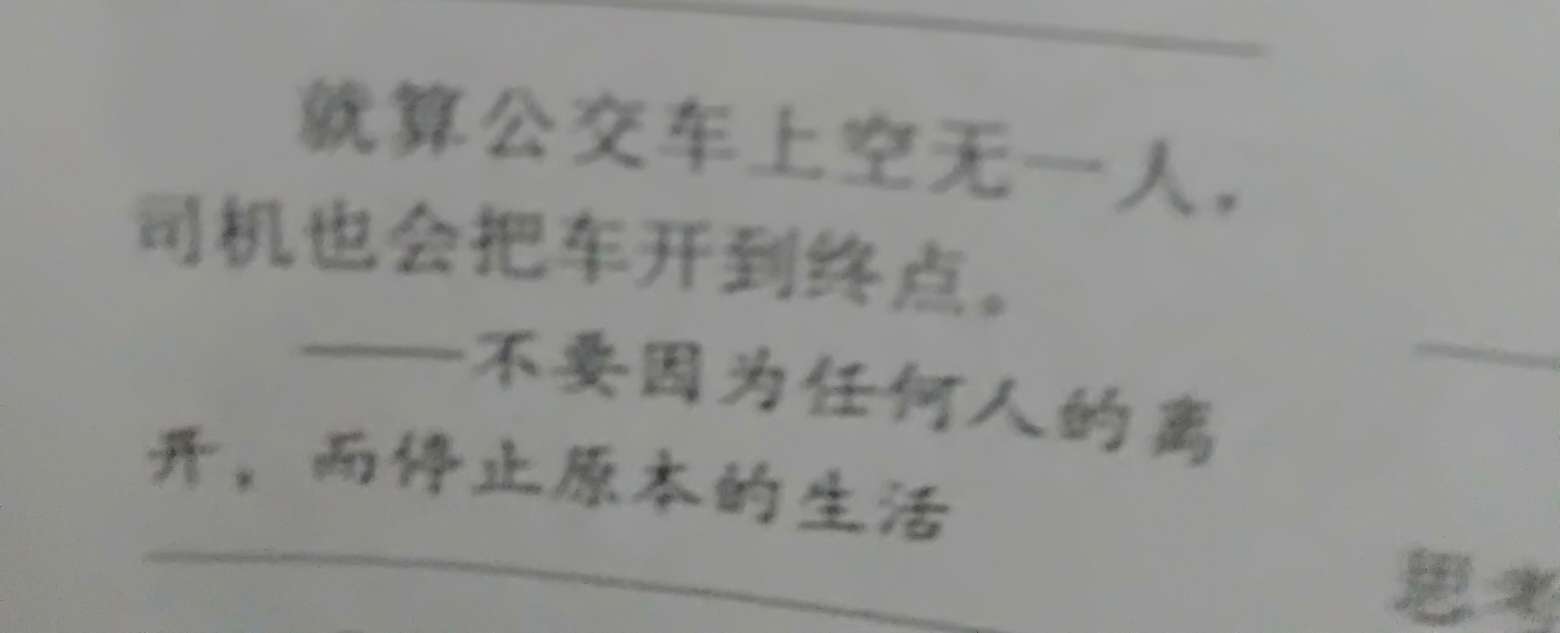 就算公交车上空无一人，
司机也会把车开到终点。
——不要因为任何人的离
开，而停止原本的生活
思考